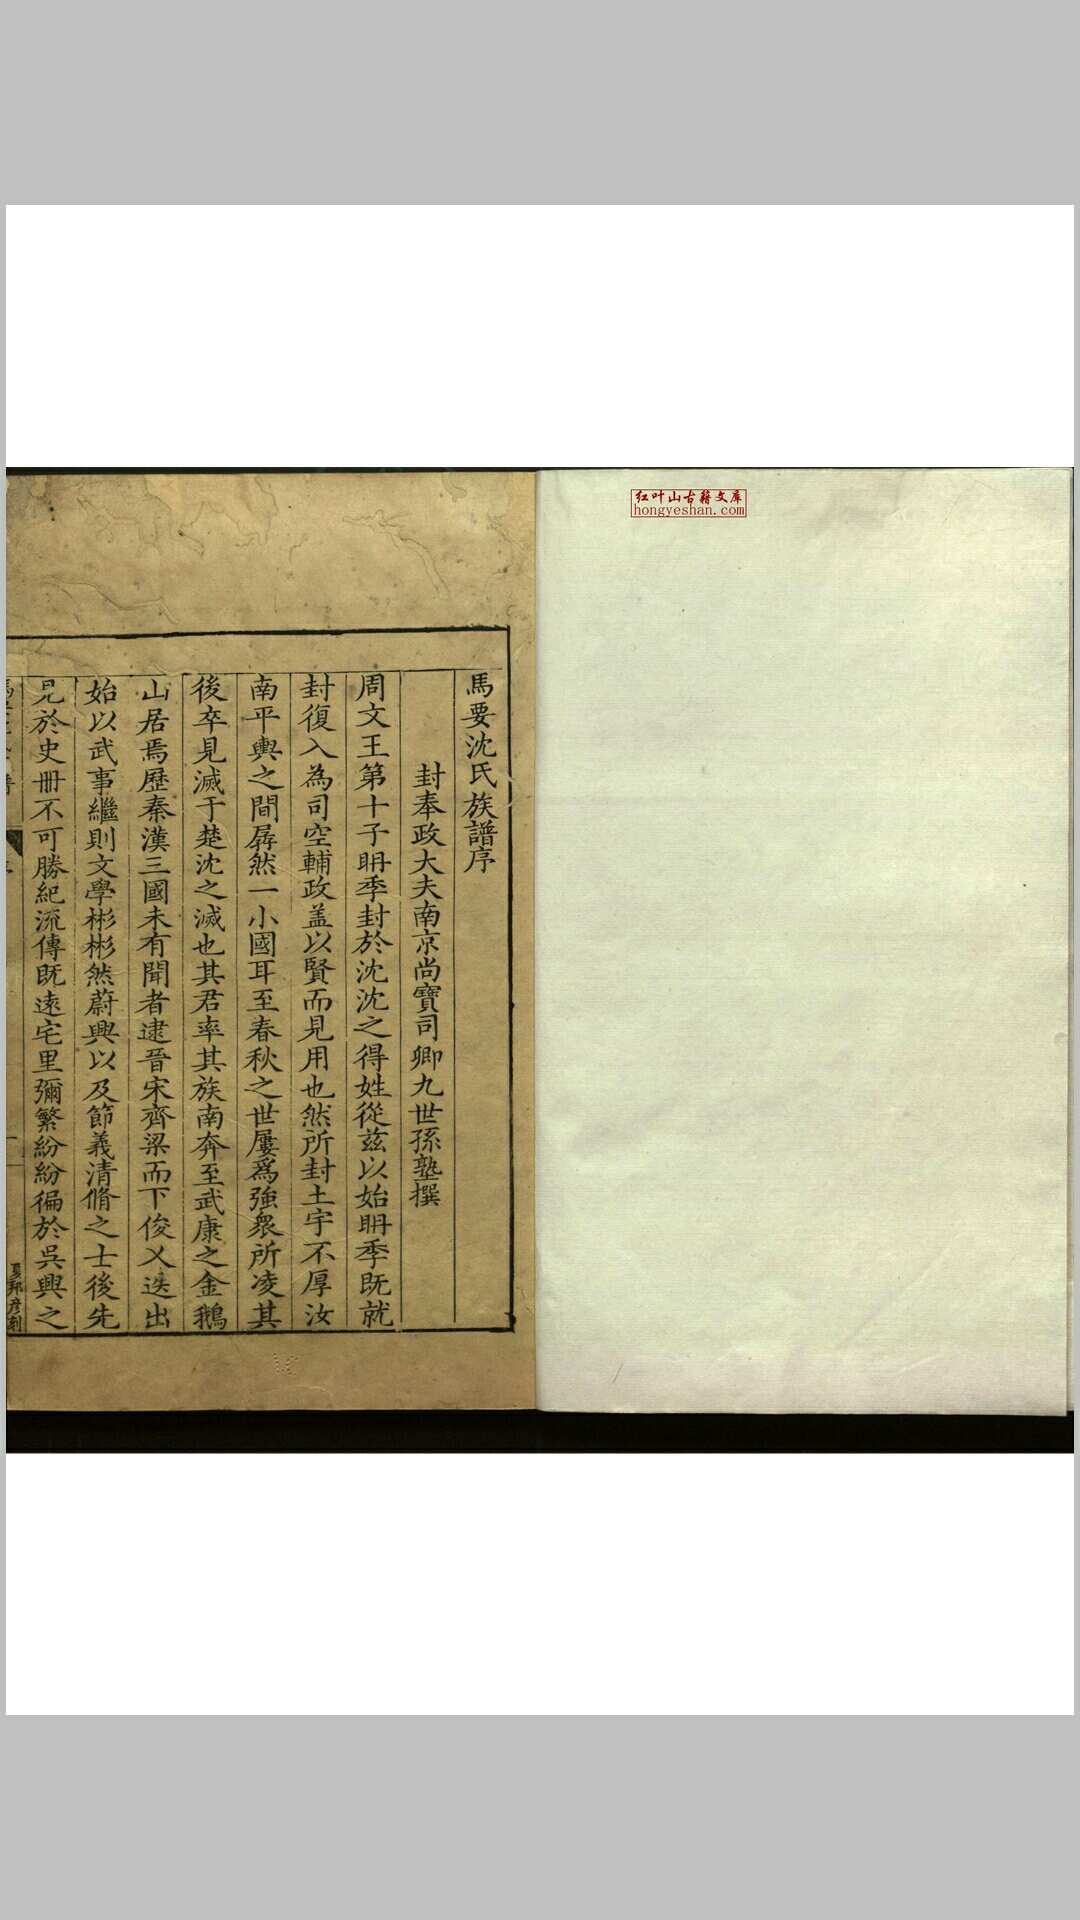 红叶山古籍文库
hongyeshan.com
馬要沈氏族譜序
封奉政大夫南京尚寶司卿九世孫塾撰
周文王第十子冊季封於沈沈之得姓從茲以始冊季既就
封復入為司空輔政盖以賢而見用也然所封土宇不厚汝
南平輿之間孱然一小國耳至春秋之世屢爲強衆所凌其
後卒見滅于楚沈之滅也其君率其族南奔至武康之金鵝
山居焉歷秦漢三國未有聞者逮晉宋齊梁而下俊乂迭出
始以武事繼則文學彬彬然蔚興以及節義清脩之士後先
見於史冊不可勝紀流傳既遠宅里彌繁紛紛徧於吳興之
夏邦彦刻